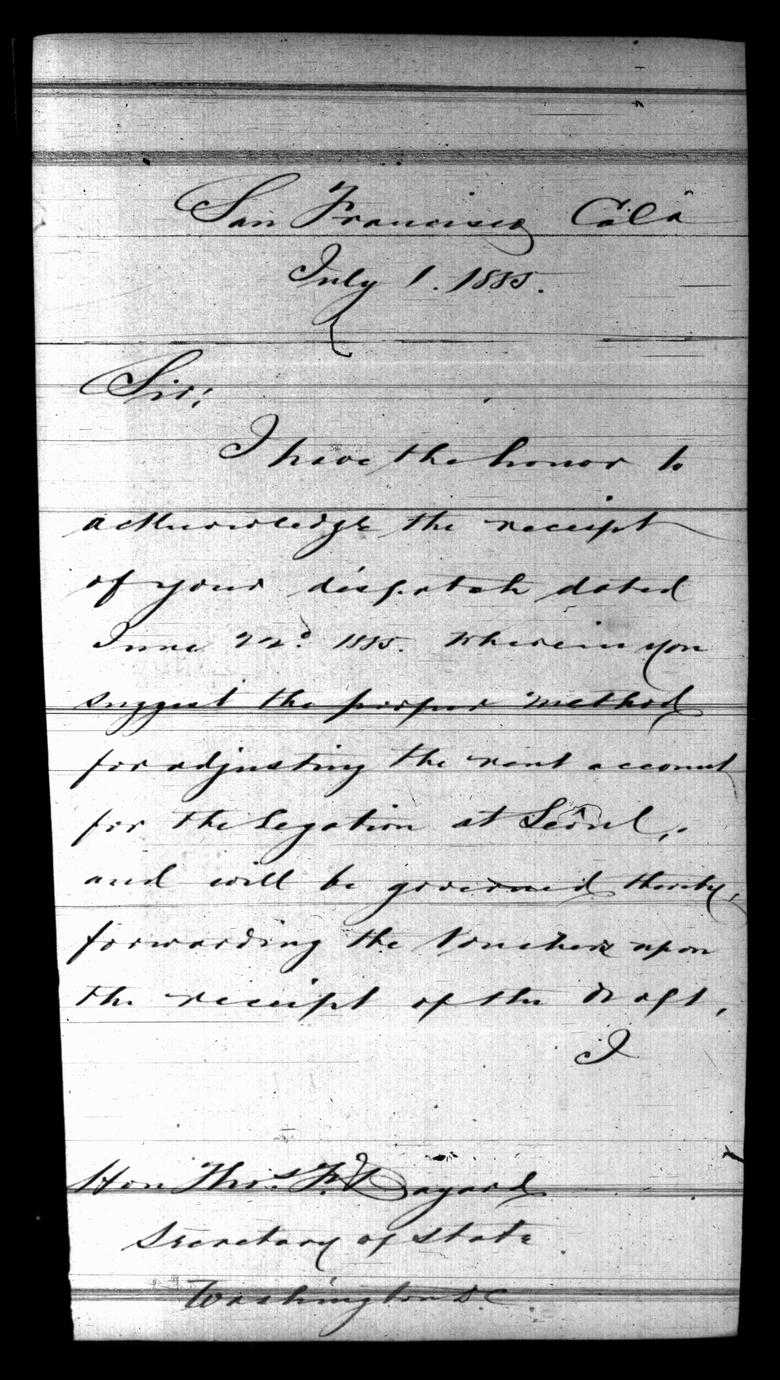 San Francisco Cala
July 1. 1885.
Sir;
I have the honor to
acknowledge the receipt
of your dispatch dated
June 22d 1885. Wherein you
suggest the proper method
for adjusting the rent account
for the Legation at Seoul,
and will be governed thereby,
forwarding the Vouchers upon
the receipt of the draft,
I
Hon Thos. F. Bayard
Secretary of State
Washington D.C.